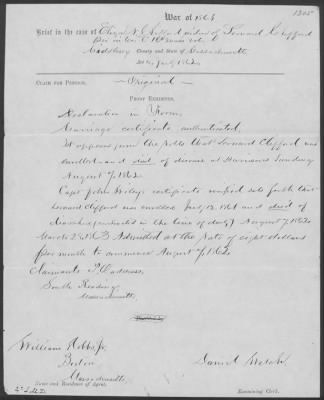 War of 1861
1305
Brief in the case of Eliza N. Clifford widow of Leonard Clifford
Middlesex County and State of Massachusetts
Act July 1862
CLAIM FOR PENSION. Original
PROOF EXHIBITED.
Declaration in Form.
Marriage certificate authenticated.
It appears from the Rolls that Leonard Clifford was
enrolled and died of disease at Harrisons Landing
August 7, 1862.
Capt. John Wiley's certificate sets forth that
Leonard Clifford was enrolled July 12, 1861 and died of
diarrhea contracted in the line of duty August 7, 1862
March 28, 1863 Admitted at the rate of eight dollars
per month to commence August 7, 1862
Claimants P.O. address,
South Reading,
Massachusetts.
William
Boston
Massachusetts
Name and Residence of Agent.
Daniel Welch
Examining Clerk.